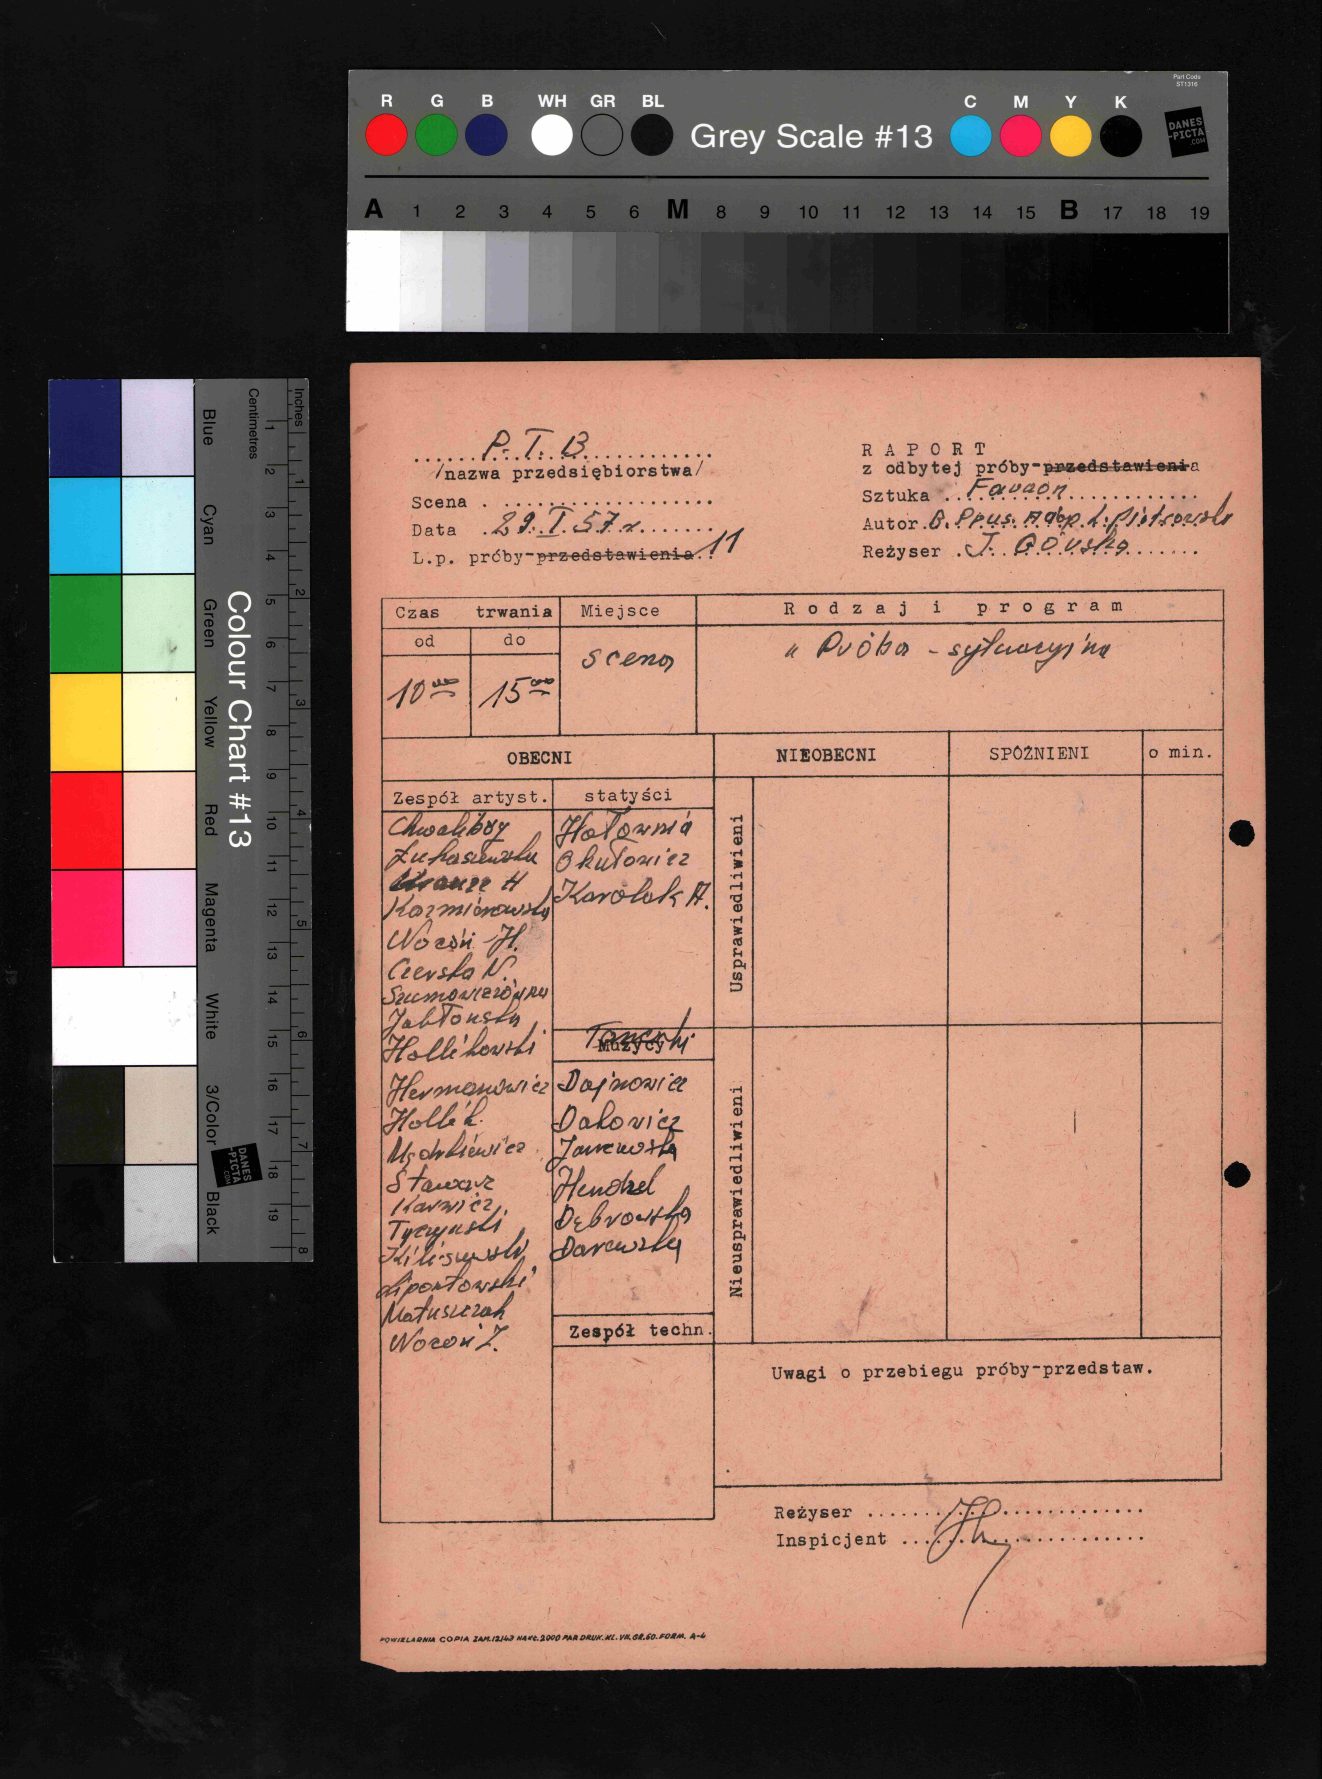 Part Code
ST1316
R G B WH GR BL
Grey Scale #13
C M Y K
DANES
-PICTA
.COM
A 1 2 3 4 5 6 M 8 9 10 11 12 13 14 15 B 17 18 19
Blue
Cyan
Green
Yellow
Red
Magenta
White
3/Color
Black
Colour Chart #13
Centimetres
1 2 3 4 5 6 7 8 9 10 11 12 13 14 15 16 17 18 19
Inches
1 2 3 4 5 6 7 8
DANES
-PICTA
.COM
P. T. B
/nazwa przedsiębiorstwa/
Scena
Data 29. I 57 r.
L.p. próby-przedstawienia 11
RAPORT
z odbytej próby-przedstawienia
Sztuka Faraon
Autor B. Prus. Adap. L. Piotrowski
Reżyser J. Górska
Czas trwania
od do
10 00 15 00
Miejsce
scena
Rodzaj i program
" Próba - sytuacyjna
OBECNI
NIEOBECNI
SPÓŹNIENI
o min.
Zespół artyst.
Chwalibóg
Łukaszewska
Krauze H
Kaźmierowska
Wozoń H.
Czerska N.
Szumowiczówna
Jabłońska
Hollikowski
Hermanowicz
Hollik
Mędrkiewicz
Karwicz
Tyczyński
Matuszczak
Wozoń Z.
statyści
Hołownia
Okułowicz
Karolak A.
Muzycy
Dojnowicz
Dakowicz
Janczewska
Hendzel
Dębrowska
Darewska
Zespół techn.
Usprawiedliwieni
Nieusprawiedliwieni
Uwagi o przebiegu próby-przedstaw.
Reżyser
Inspicjent
POWIELARNIA COPIA ZAM.12143 NAKŁ.2000 PAR DRUK. KL. VII. GR. 60. FORM. A-4